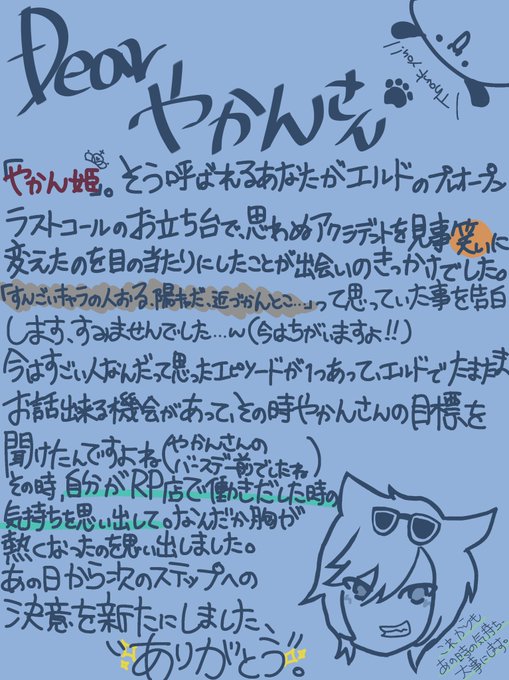 Dear
やかんさん
Thank You!
「やかん姫」。そう呼ばれるあなたがエルドのプレオープン
ラストコールのお立ち台で、思わぬアクシデントを見事笑いに
変えたのを目の当たりにしたことが出会いのきっかけでした。
「すんごいキャラの人おる、陽キャだ、近づかんとこ…」って思っていた事を告白
します、すみませんでした…w(今はちがいますよ!!)
今はすごい人なんだって思ったエピソードが1つあって、エルドでたまたま
お話出来る機会があって、その時やかんさんの目標を
聞けたんですよね(やかんさんのバースデー前でしたね)
その時、自分がRP店で働きだした時の
気持ちを思い出して。なんだか胸が
熱くなったのを思い出しました。
あの日から次のステップへの
決意を新たにしました、
ありがとう。
これからも
あの時の気持ち
大事にします。